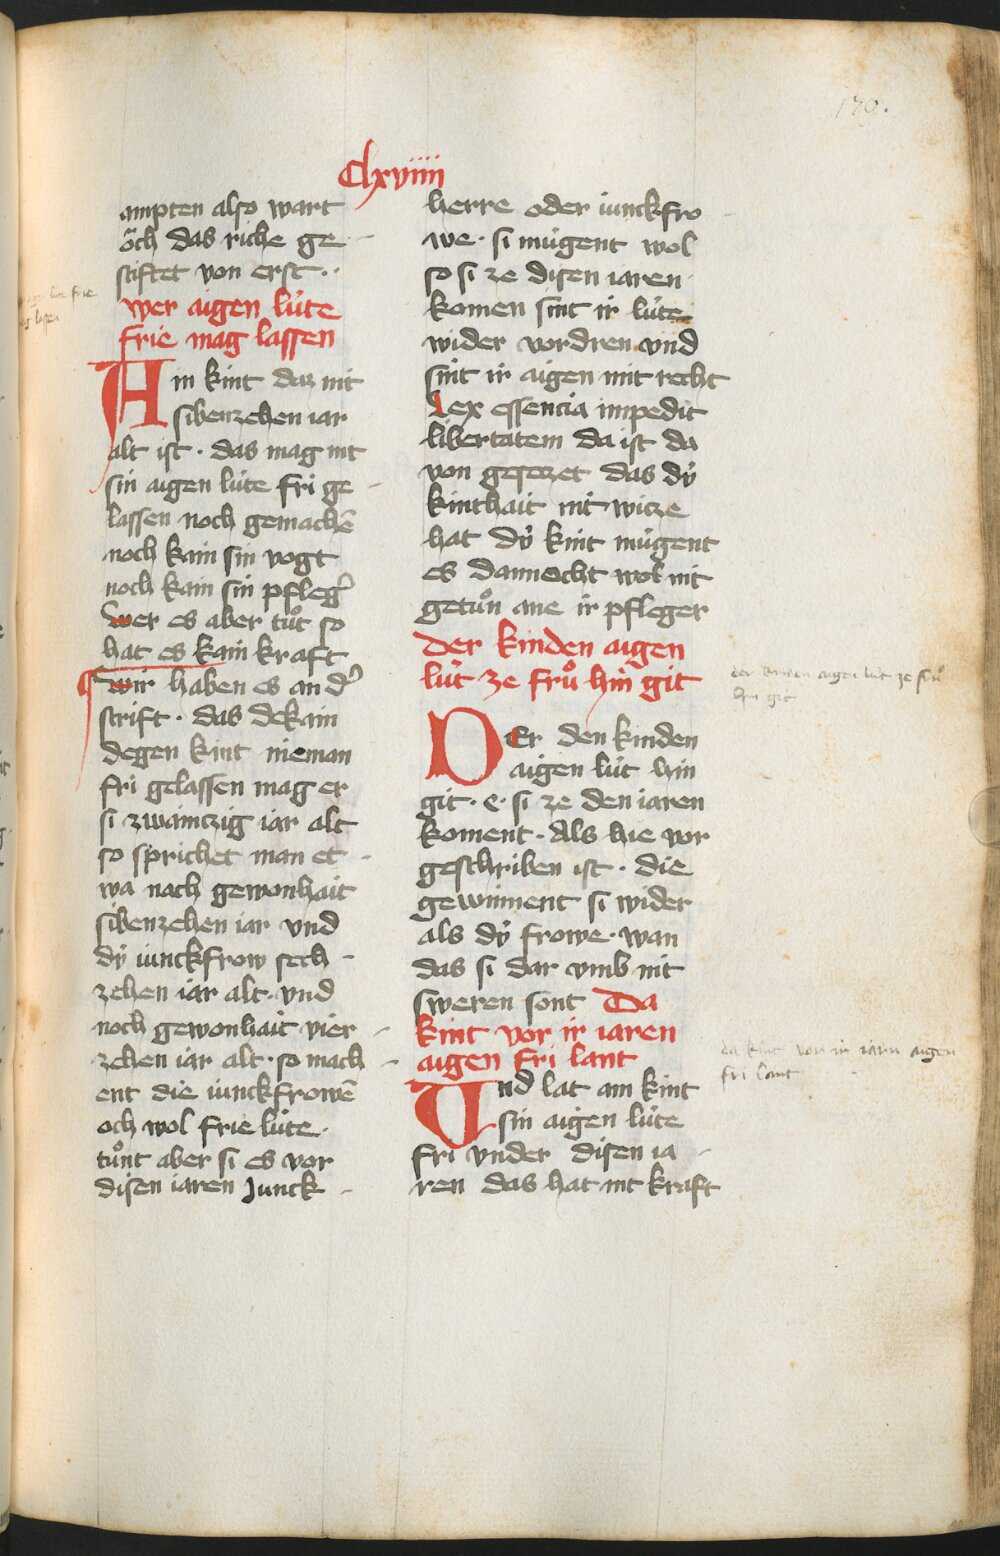 170.
Clxviiii
ampten also wart
och das riche ge
stiftet von erst..
wer aigen lúte
frie mag lassen
Ain kint daz nit
sibenzehen iar
alt ist. das mag nit
sin aigen lúte fri ge
lassen noch gemachē
noch kain sin vogt
noch kain sin pfleg̉
wer es aber tuͦt so
hat es kain kraft
¶ wir haben es an d̉
scrift. das dekain
degen kint nieman
fri gelassen mag er
si zwaintzig iar alt
so sprichet man et
wa nach gewonhait
sibenzehen iar vnd
dÿ iunckfrow sech
zehen iar alt. vnd
noch gewonhait vier
zehen iar alt. so mach
ent die iunckfrowē
och wol frie lúte.
tuͦnt aber si es vor
disen iaren Junck
herre oder iunckfro
we. si múgent wol
so si ze disen iaren
komen sint ir lúte
wider vordren vnd
sint ir aigen mit recht
Lex essencia impedit
libertatem da ist da
von gesetzet das dÿ
kinthait nit witze
hat dÿ kint múgent
es dannocht wol nit
getuͦn ane ir pfleger
der kinden aigen
lút ze fruͦ hin git
der kinden aigen lút ze fruͦ
hin git
DEr den kinden
aigen lút hin
git. e. si ze den iaren
koment. Als hie vor
geschriben ist. die
gewinnent si wider
als dÿ frowe. wan
das si dar vmb nit
sweren sont Da
kint vor ir iaren
aigen fri lant
da kint vor ir iarn aigen
fri lant
Vnd lat ain kint
sin aigen lúte
fri vnder disen ia
ren das hat nit kraft